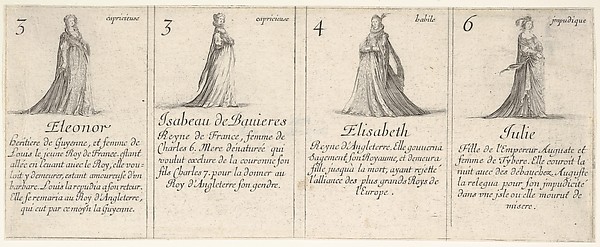 3 capricieuse
Eleonor
héritière de Guyenne, et femme de
Louis le jeune Roy de France. estant
allée en l'euant auec le Roy, elle vou-
lut y demeurer, estant amoureuse d'vn
barbare. Louis la repudia a son retour.
Elle se remaria au Roy d'Angleterre,
qui eut par ce moyen la Guyenne.
3 capricieuse
Isabeau de Bauieres
Reyne de France, femme de
Charles 6. Mere dénaturée qui
voulut exclure de la couronne son
fils Charles 7. pour la donner au
Roy d'Angleterre son gendre.
4 habile
Elisabeth
Reyne d'Angleterre. Elle gouuerna
sagement son Royaume, et demeura
fille jusqu'a la mort, ayant rejetté
l'alliance des plus grands Roys de
l'Europe.
6 impudique
Iulie
Fille de l'Empereur Auguste et
femme de Tybere. Elle couroit la
nuit auec des débauchez. Auguste
la relegua pour son impudicité
dans vne isle ou elle mourut de
misere.